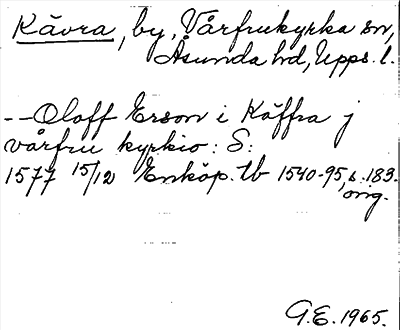 Kävra, by, Vårfrukyrka sn,
Åsunda hd, Upps. l.
--Oloff Erson i Käffra j
vårfru kyrkio: S:
1577 15/12 Enköp. tb 1540-95, s. 183.
orig.
G.E. 1965.